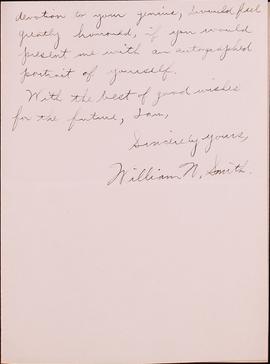 devotion to your genius, I would feel
greatly honoured, if you would
present me with an autographed
portrait of yourself.
With the best of good wishes
for the future, I am,
Sincerely yours,
William N. Smith.